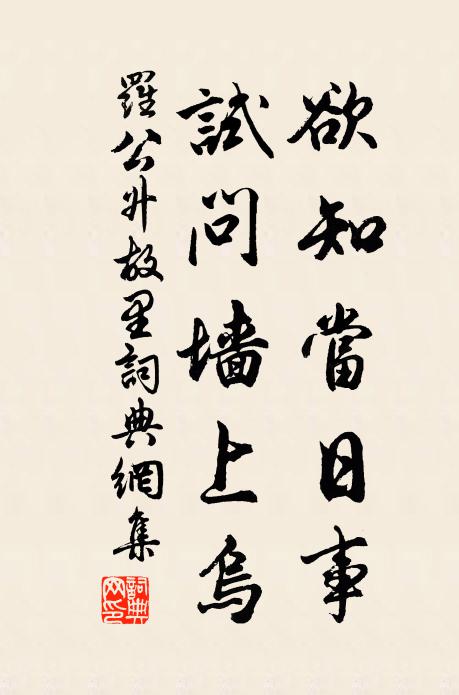 欲知當日事
試問墻上烏
羅公升故里詞典網集
詞典网印